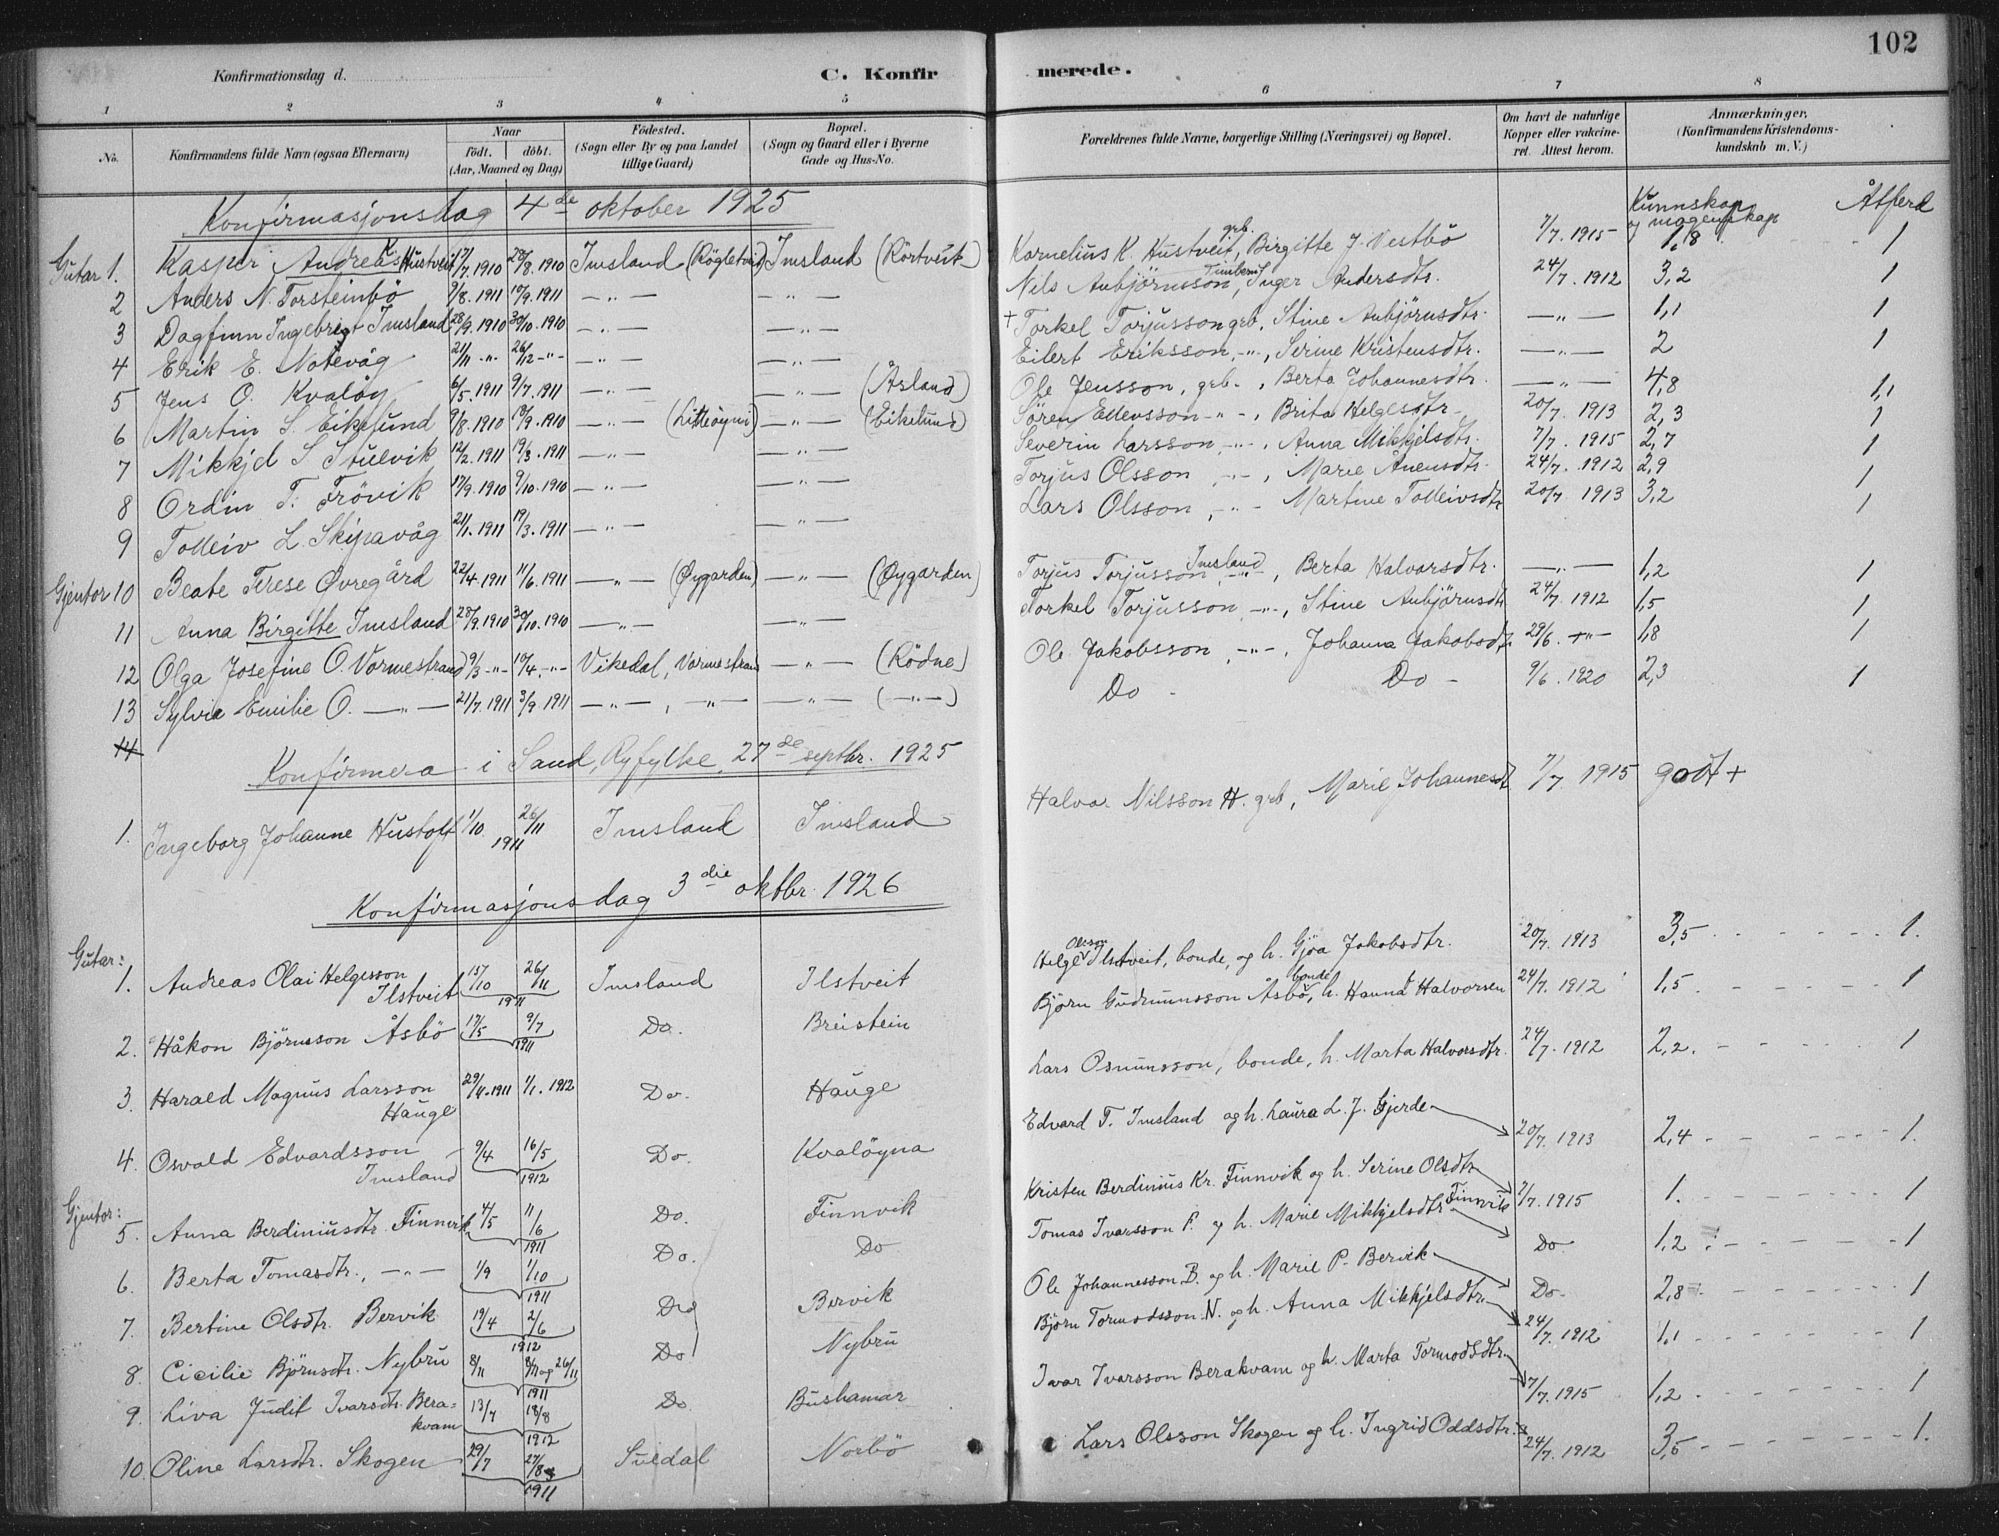 102
Konfirmationsdag d.
C. Konfir
merede.
1 2 3 4 5 6 7 8
No.
Konfirmandens fulde Navn (ogsaa Efternavn)
Naar
født. døbt.
(Aar, Maaned og Dag)
Fødested.
(Sogn eller By og paa Landet tillige Gaard)
Bopæl.
(Sogn og Gaard eller i Byerne Gade og Hus-No.
Forældrenes fulde Navne, borgerlige Stilling (Næringsvei) og Bopæl.
Om havt de naturlige Kopper eller vakcineret. Attest herom.
Anmærkninger, (Konfirmandens Kristendomskundskab m. V.)
Konfirmasjonsdag 4de oktober 1925
Kunnskap og mogenskap Åtferd
Gutar 1. Kasper Andreas K Hustveit 17/7.1910 28/8.1910 Imsland (Røgletveid) Imsland (Rörtveit) Kornelius K. Hustveit, grb. Birgitte J. Vestbö 7/7.1915 1,8 1
2 Anders N. Torsteinbö 9/8.1911 10/9.1911 —"— —"— Nils Aubjörnsson, Timberm. Inger Andersdtr. 24/7.1912 3,2 1
3 Dagfinn Ingebrigt Imsland 28/9.1910 30/10.1910 —"— —"— + Torkel Torjusson grb., Stine Aubjörnsdtr. —"— 1,1 1
4 Erik E. Notevåg 21/11 -"- 26/12 -"- —"— —"— Eilert Eriksson, -"-, Serine Kristensdtr. —"— 2 1
5 Jens O. Kvalöy 6/5.1911 9/7.1911 —"— —"— (Årland) Ole Jensson, grb., Berta Johannesdtr. —"— 4,8 1,1
6 Martin S. Eikelund 9/8.1910 18/9.1910 —"— (Litleöyni) —"— (Eikelund) Sören Ellevsson -"-, Brita Helgesdtr. 20/7.1913 2,3 1
7 Mikkjel S Stulvik 12/2.1911 19/3.1911 —"— —"— Severin Larsson, -"-, Anna Mikkjelsdtr. 7/7.1915 2,7 1
8 Ordin T. Frövik 17/9.1910 9/10.1910 —"— —"— Torjus Olsson, -"-, Marie Ånensdtr. 24/7.1912 2,9 1
9 Tolleiv L. Skipavåg 21/1.1911 19/3.1911 —"— —"— Lars Olsson, -"- Martine Tolleivsdtr. 20/7.1913 3,2 1
Gjentor 10 Beate Terese Øvregård 22/4.1911 11/6.1911 —"— (Øygarden) —"— (Øygarden) Torjus Torjusson Imsland -"-, Berta Halvorsdtr. —"— 1,2 1
11 Anna Birgitte Imsland 28/9.1910 30/10.1910 —"— Torkel Torjusson, -"-, Stine Aubjörnsdtr 24/7.1912 1,5 1
12 Olga Josefine O. Vormestrand 9/3 -"- 10/4. -"- Vikedal, Vormestrand —"— (Rödne) Ole Jakobsson, -"-, Johanna Jakobsdtr. 29/6. -"- 1,8 1
13 Sylvia Emilie O. —"— 21/7.1911 3/9.1911 —"—, —"— —"— (—"—) Do Do - 9/6.1920 2,3 1
14
Konfirmera i Sand, Ryfylke, 27de septbr. 1925
1. Ingeborg Johanne Hustoft 1/10 26/11 1911 Imsland Imsland Halvar Nilsson H. grb, Marie Johannesdt 7/7 1915 godt +
Konfirmasjonsdag 3die oktbr. 1926
Gutar:
1. Andreas Olai Helgesson Ilstveit 15/10 26/11 1911 Imsland Ilstveit Helge Olsson Ilstveit, bonde, og h. Gjöa Jakobsdtr. 20/7.1913 3,5 1.
2. Håkon Björnsson Åsbö 17/5 9/7 1911 Do. Breistein Björn Gudmunsson Åsbö, bonde h. Hanna Halvorsen 24/7.1912 1,5 1
3. Harald Magnus Larsson Hauge 29/4.1911 1/1.1912 Do. Hauge Lars Osmunsson, bonde, h. Marta Halvorsdtr. 24/7.1912 2,2. 1
4. Osvald Edvardsson Imsland 9/4 16/5 1912 Do. Kvalöyna Edvard T. Imsland og h. Laura L. J. Gjerde 20/7.1913 2,4 1.
Gjentor:
5. Anna Berdiniusdtr. Finnvik 4/5 11/6 1911 Do. Finnvik Kristen Berdinius Kr. Finnvik og h. Serine Olsdtr 7/7.1915 1. 1
6. Berta Tomasdtr., —"— 1/9 1/10 1911 Do. Do Tomas Ivarsson F. og h. Marie Mikkjelsdtr Finnvik Do. 1,2 1
7. Bertine Olsdtr. Bervik 19/4 2/6 1912 Do Bervik Ole Johannesson B. og h. Marie P. Bervik Do. 2,8 1
8. Cicilie Björnsdtr. Nybru 8/11 8/11 og 26/11 1911 Do Nybru Björn Tormodsson N. og h. Anna Mikkjelsdtr. 24/7.1912 1,1 1
9. Liva Judit Ivarsdtr. Berakvam 13/7 18/8 1912 Do. Bushamar Ivar Ivarsson Berakvam og h. Marta Tormodsdtr. 7/7.1915 1,2 1
10. Oline Larsdtr. Skogen 29/7 27/8 1911 Suldal Norbö Lars Olsson Skogen og h. Ingrid Oddsdtr. 24/7.1912 3,5 1.